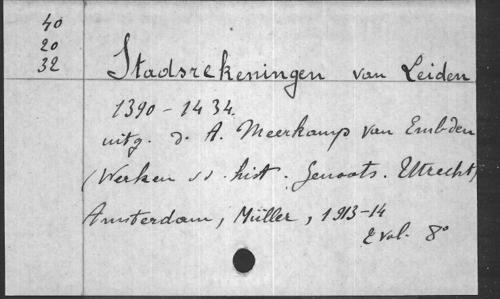 40
20
32
Stadsrekeningen van Leiden
1390-1434.
uitg. d. A. Meerkamp van Embden
(Werken hist. Genoots. Uttrecht)
Amsterdam, Müller, 1913-14
2 vol. 8°